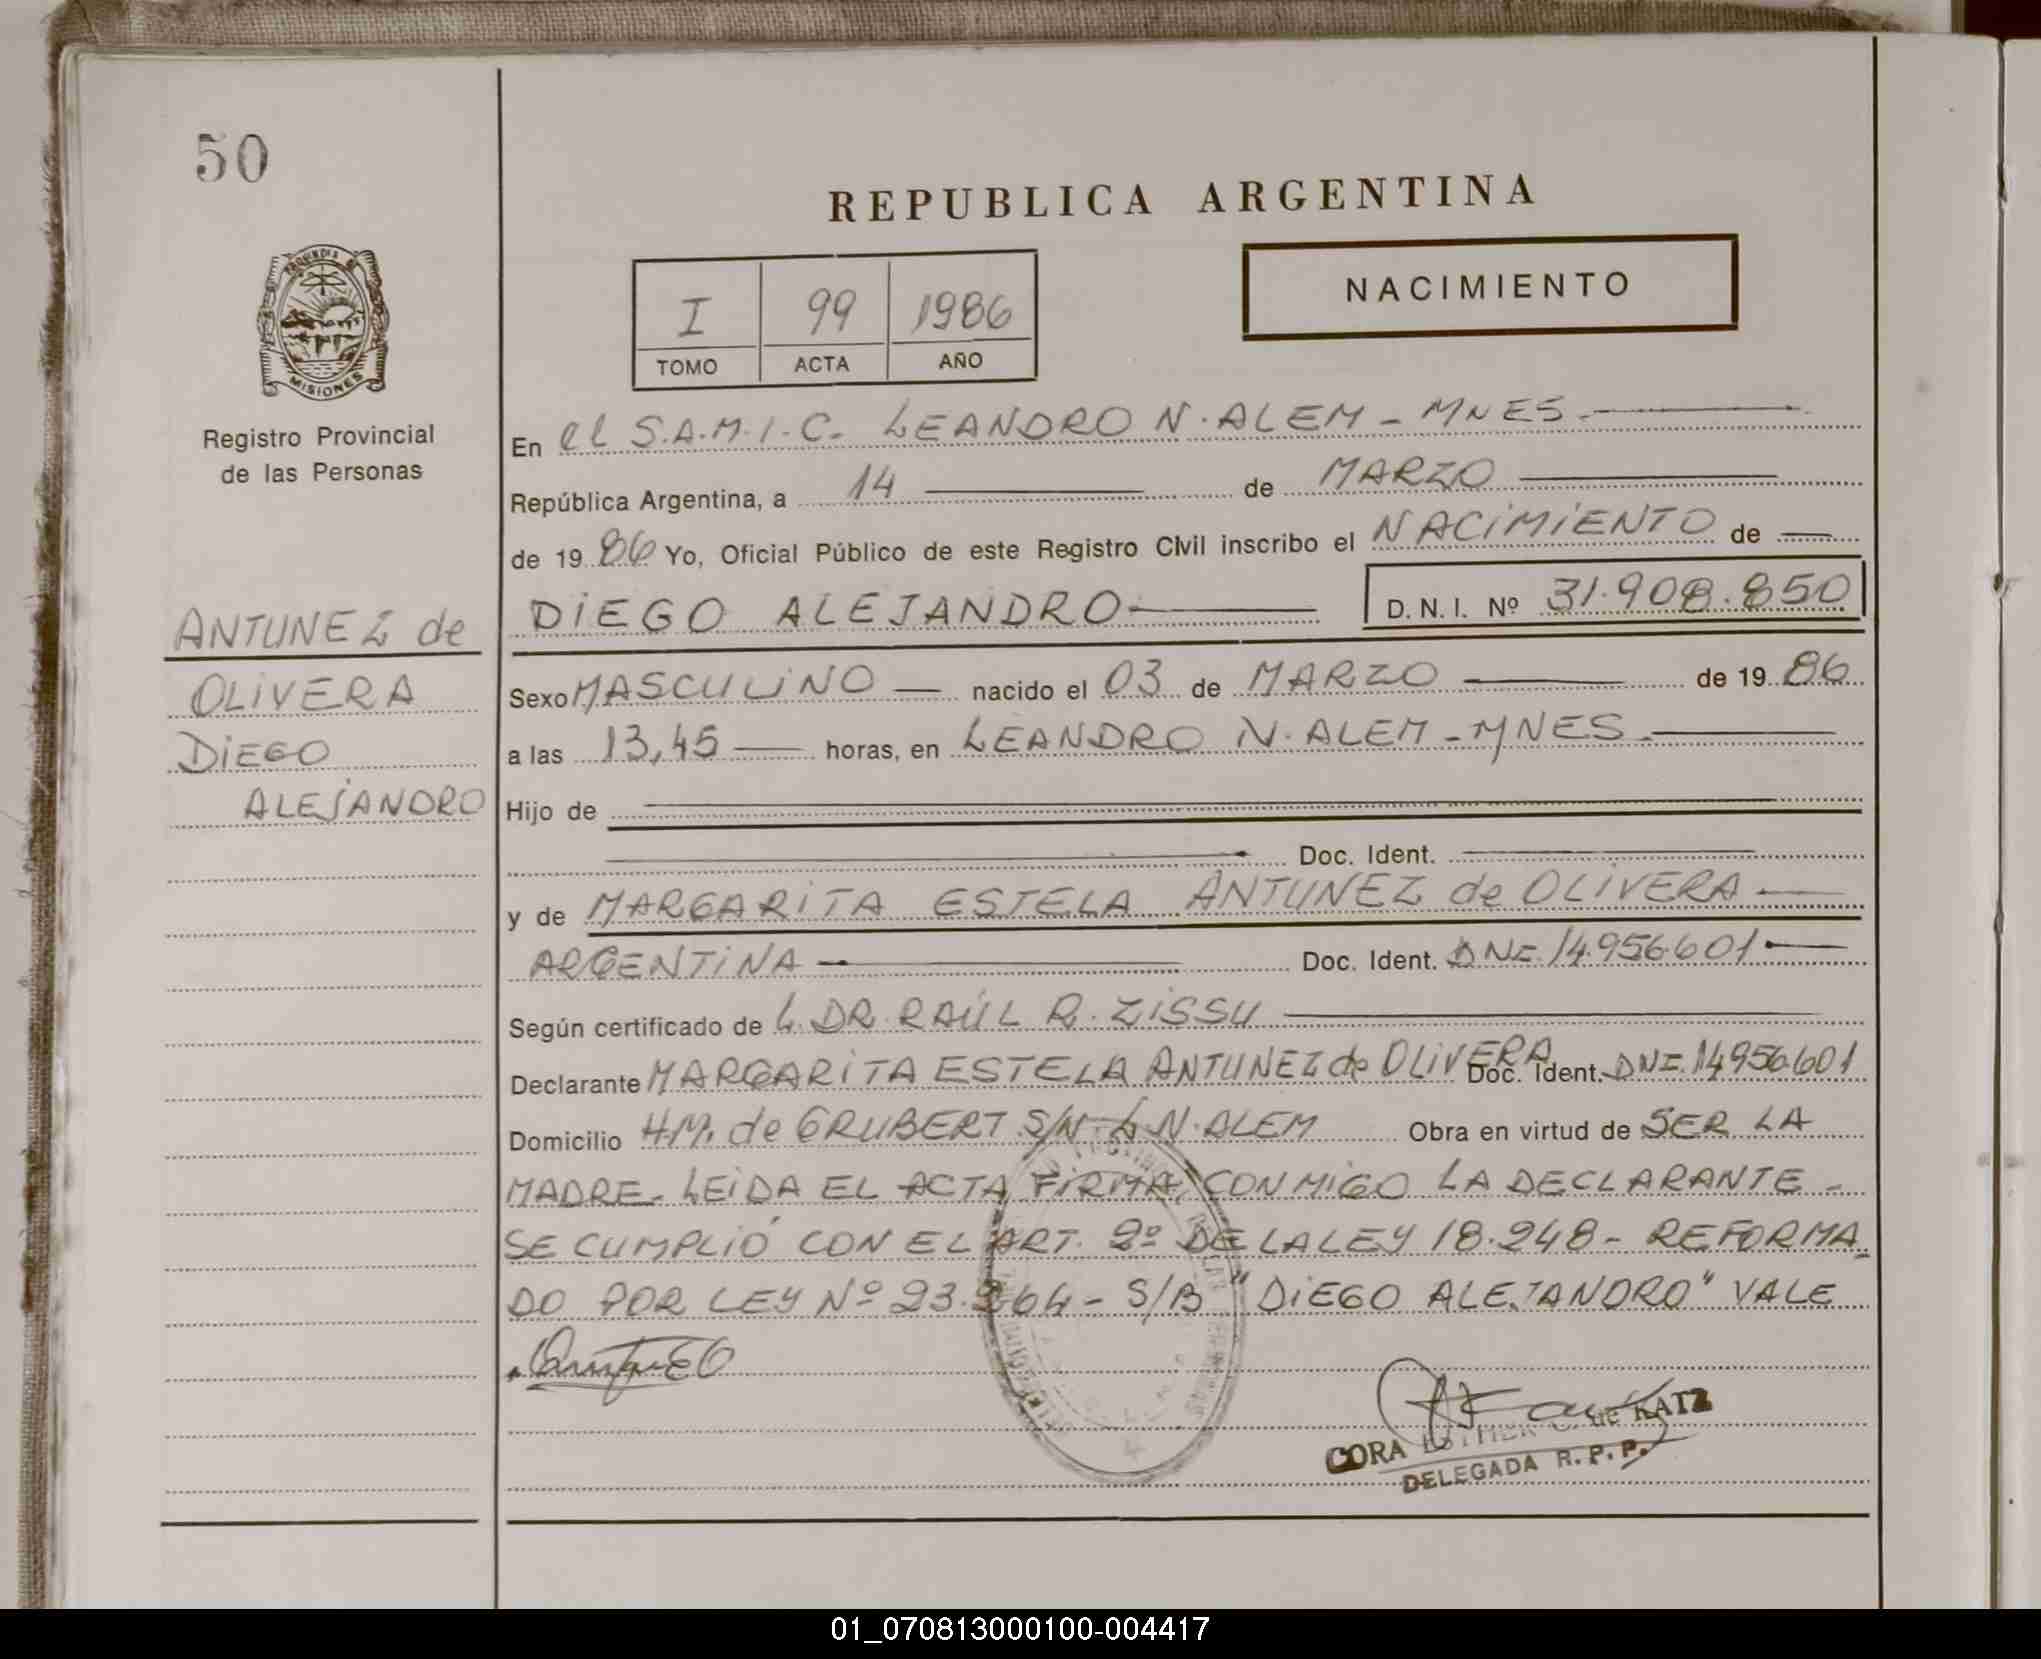 50
REPUBLICA ARGENTINA
NACIMIENTO
I 99 1986
TOMO ACTA AÑO
PROVINCIA DE
MISIONES
Registro Provincial
de las Personas
ANTUNEZ de
OLIVERA
DIEGO
ALEJANDRO
En el S.A.M.I.C. LEANDRO N. ALEM - MNES.
República Argentina, a 14 de MARZO
de 19 86 Yo, Oficial Público de este Registro Civil inscribo el NACIMIENTO de
DIEGO ALEJANDRO D.N.I. Nº 31.908.850
Sexo MASCULINO nacido el 03 de MARZO de 19 86
a las 13,45 horas, en LEANDRO N. ALEM - MNES.
Hijo de
Doc. Ident.
y de MARGARITA ESTELA ANTUNEZ de OLIVERA
ARGENTINA Doc. Ident. DNI. 14.956.601
Según certificado de L. DR. RAÚL R. ZISSU
Declarante MARGARITA ESTELA ANTUNEZ de OLIVERA Doc. Ident. DNI. 14956.601
Domicilio H.M. de GRUBERT S/N- L. N. ALEM Obra en virtud de SER LA
MADRE. LEIDA EL ACTA, FIRMA, CONMIGO LA DECLARANTE -
SE CUMPLIÓ CON EL ART. 2º DE LA LEY 18.248 - REFORMA
DO POR LEY Nº 23.264 - S/B "DIEGO ALEJANDRO" VALE
CORA ESTHER de KATZ
DELEGADA R.P.P.
01_070813000100-004417